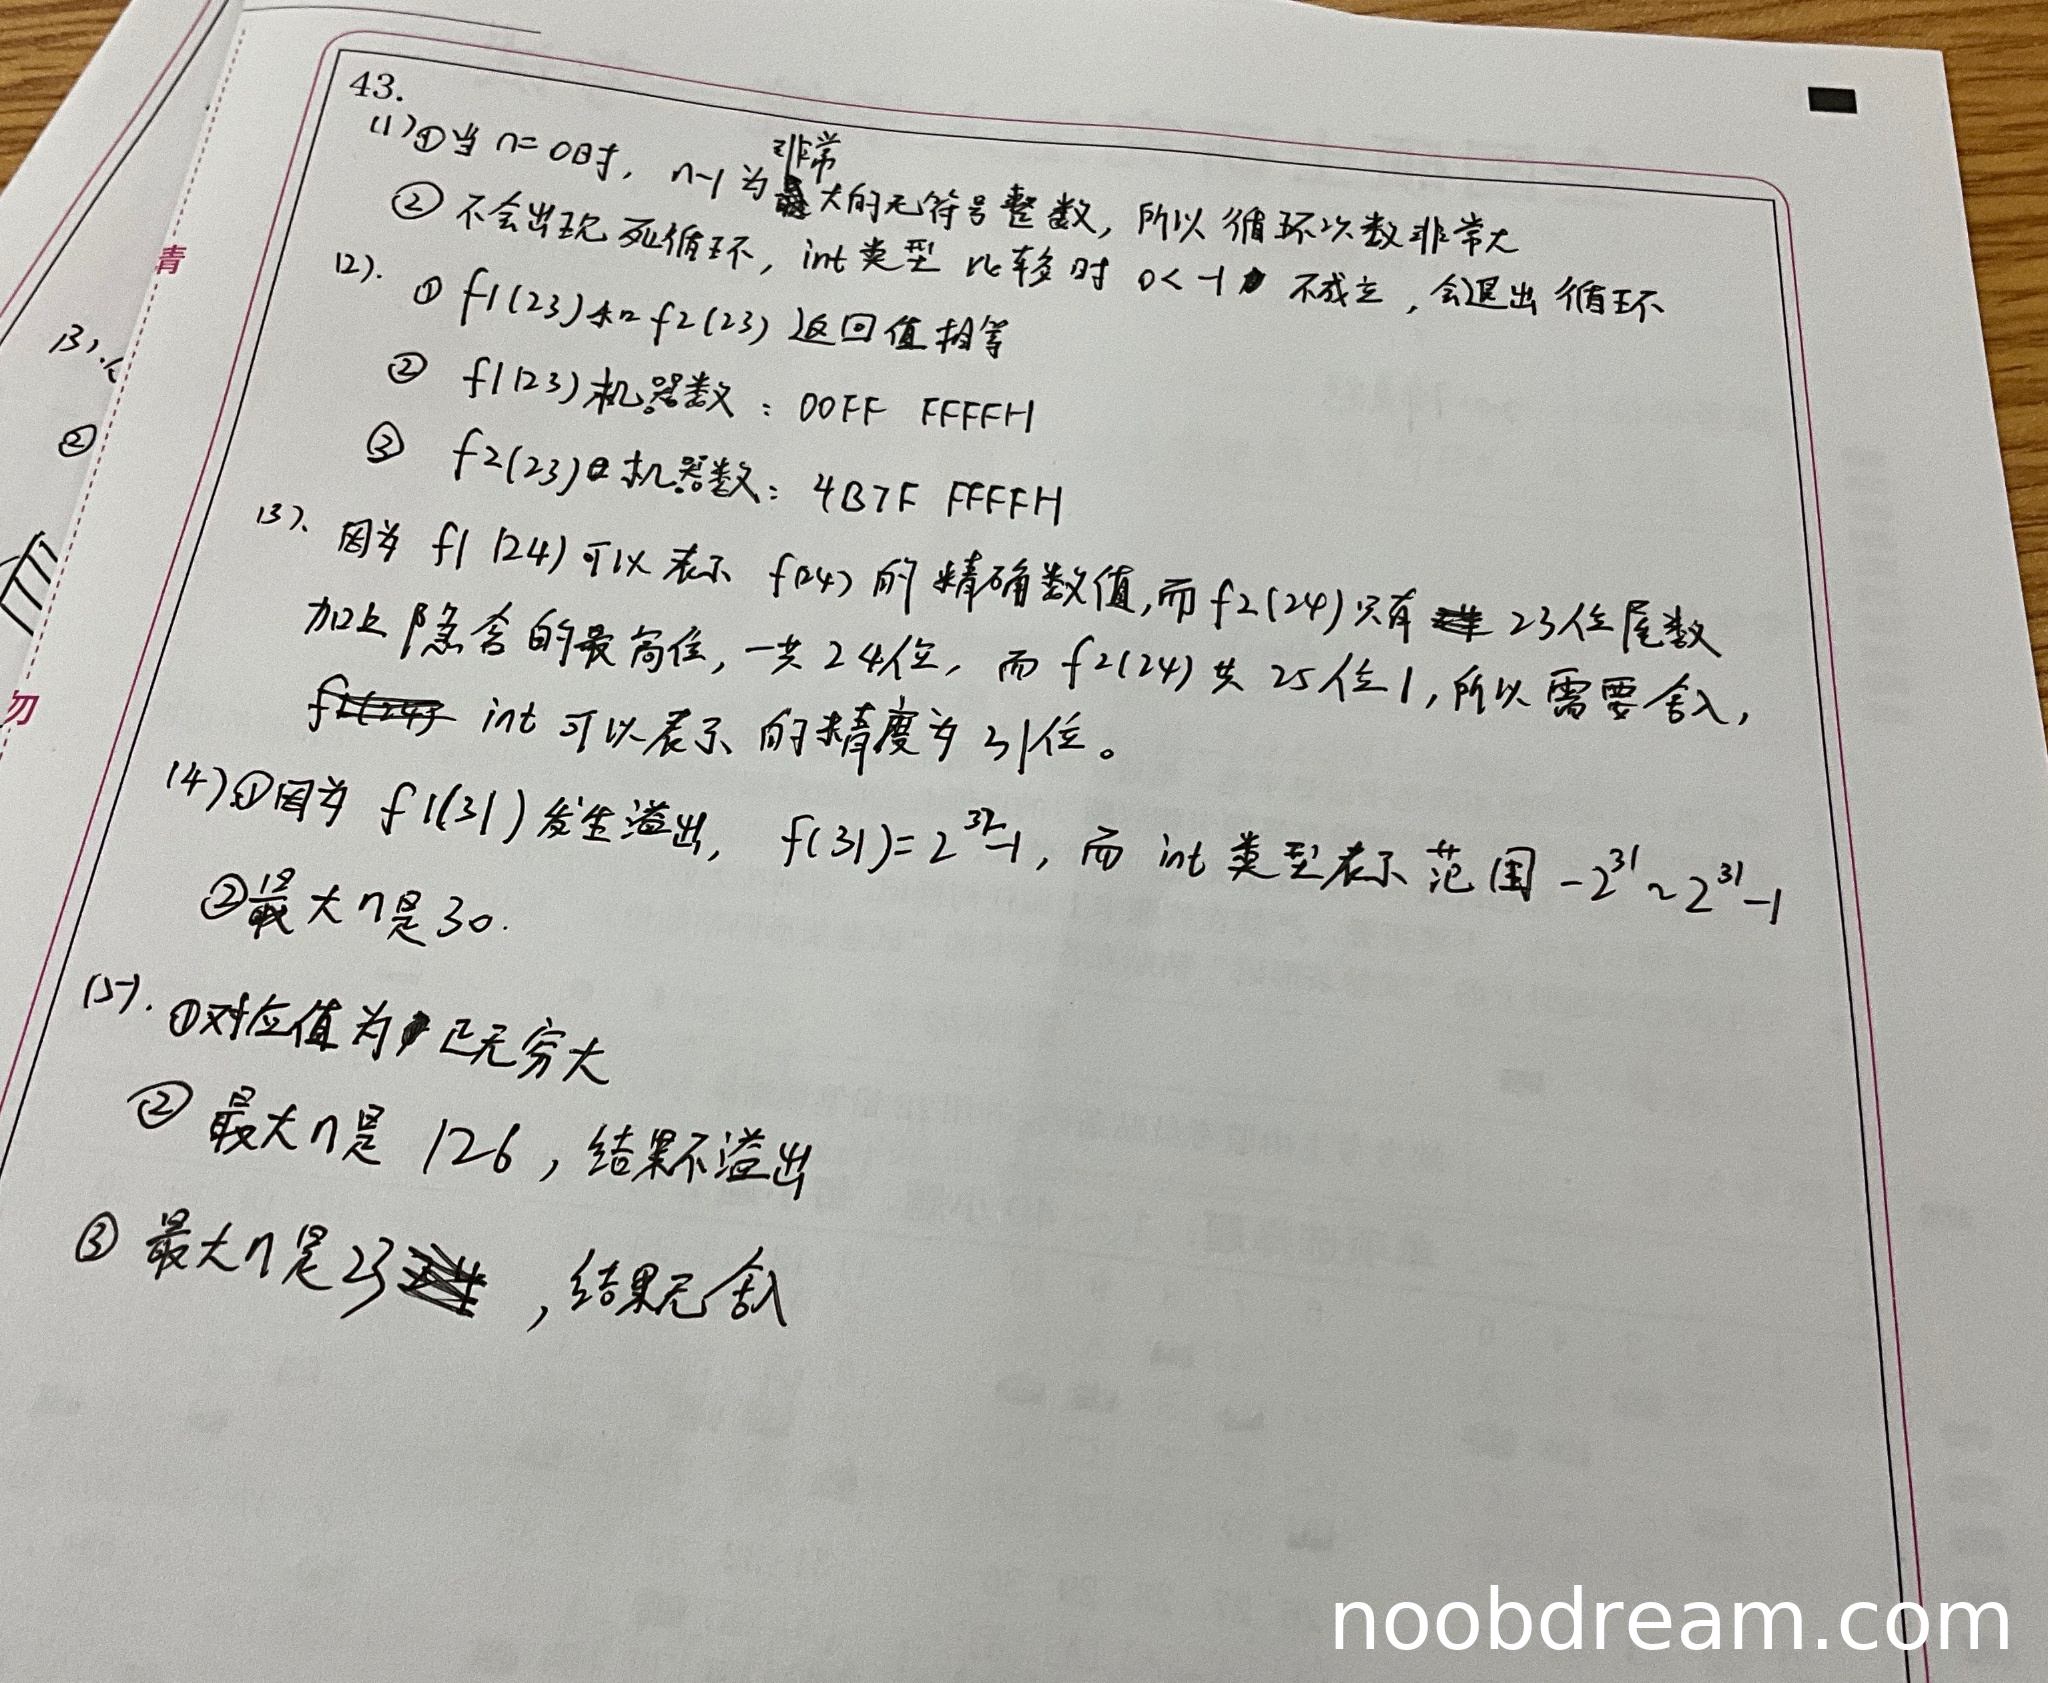 43.
(1) ①当 n=0时, n-1 为非常大的无符号整数, 所以循环次数非常大
② 不会出现死循环, int类型比较时 0<-1 不成立, 会退出循环
(2). ① f1(23)和f2(23)返回值相等
② f1(23)机器数: 00FF FFFFH
③ f2(23)机器数: 4B7F FFFFH
(3). 因为 f1(24)可以表示 f(24) 的精确数值,而f2(24)只有 23位尾数
加上隐含的最高位, 一共24位, 而 f2(24)共 25位1,所以需要舍入,
int 可以表示的精度为31位。
(4).①因为 f1(31)发生溢出, f(31)=2^32-1, 而 int 类型表示范围 -2^31~2^31-1
②最大n是30.
(5). ①对应值为正无穷大
② 最大n是 126, 结果不溢出
③ 最大n是23, 结果无舍入
请
勿
(3).
②
noobdream.com